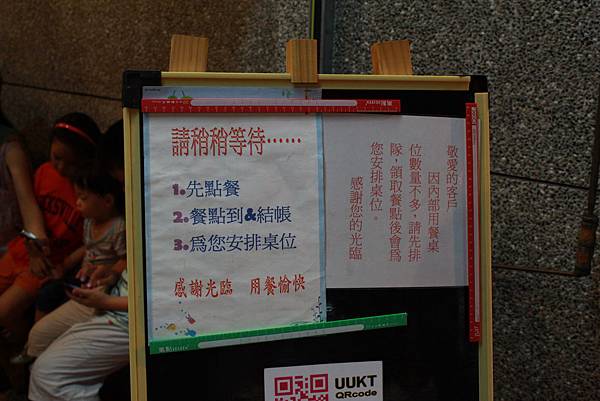 請稍稍等待……
1.先點餐
2.餐點到&結帳
3.為您安排桌位
感謝光臨　用餐愉快
敬愛的客戶
因內部用餐桌
位數量不多,請先排
隊,領取餐點後會為
您安排桌位。
感謝您的光臨
UUKT
QRcode